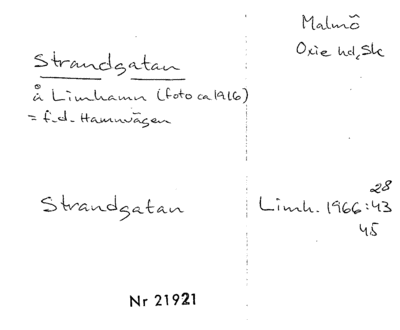 Malmö
Oxie hd, Sk
Strandgatan
å Limhamn (foto ca 1916)
= f.d. Hamnvägen
Strandgatan
28
Limh. 1966:43
45
Nr 21921